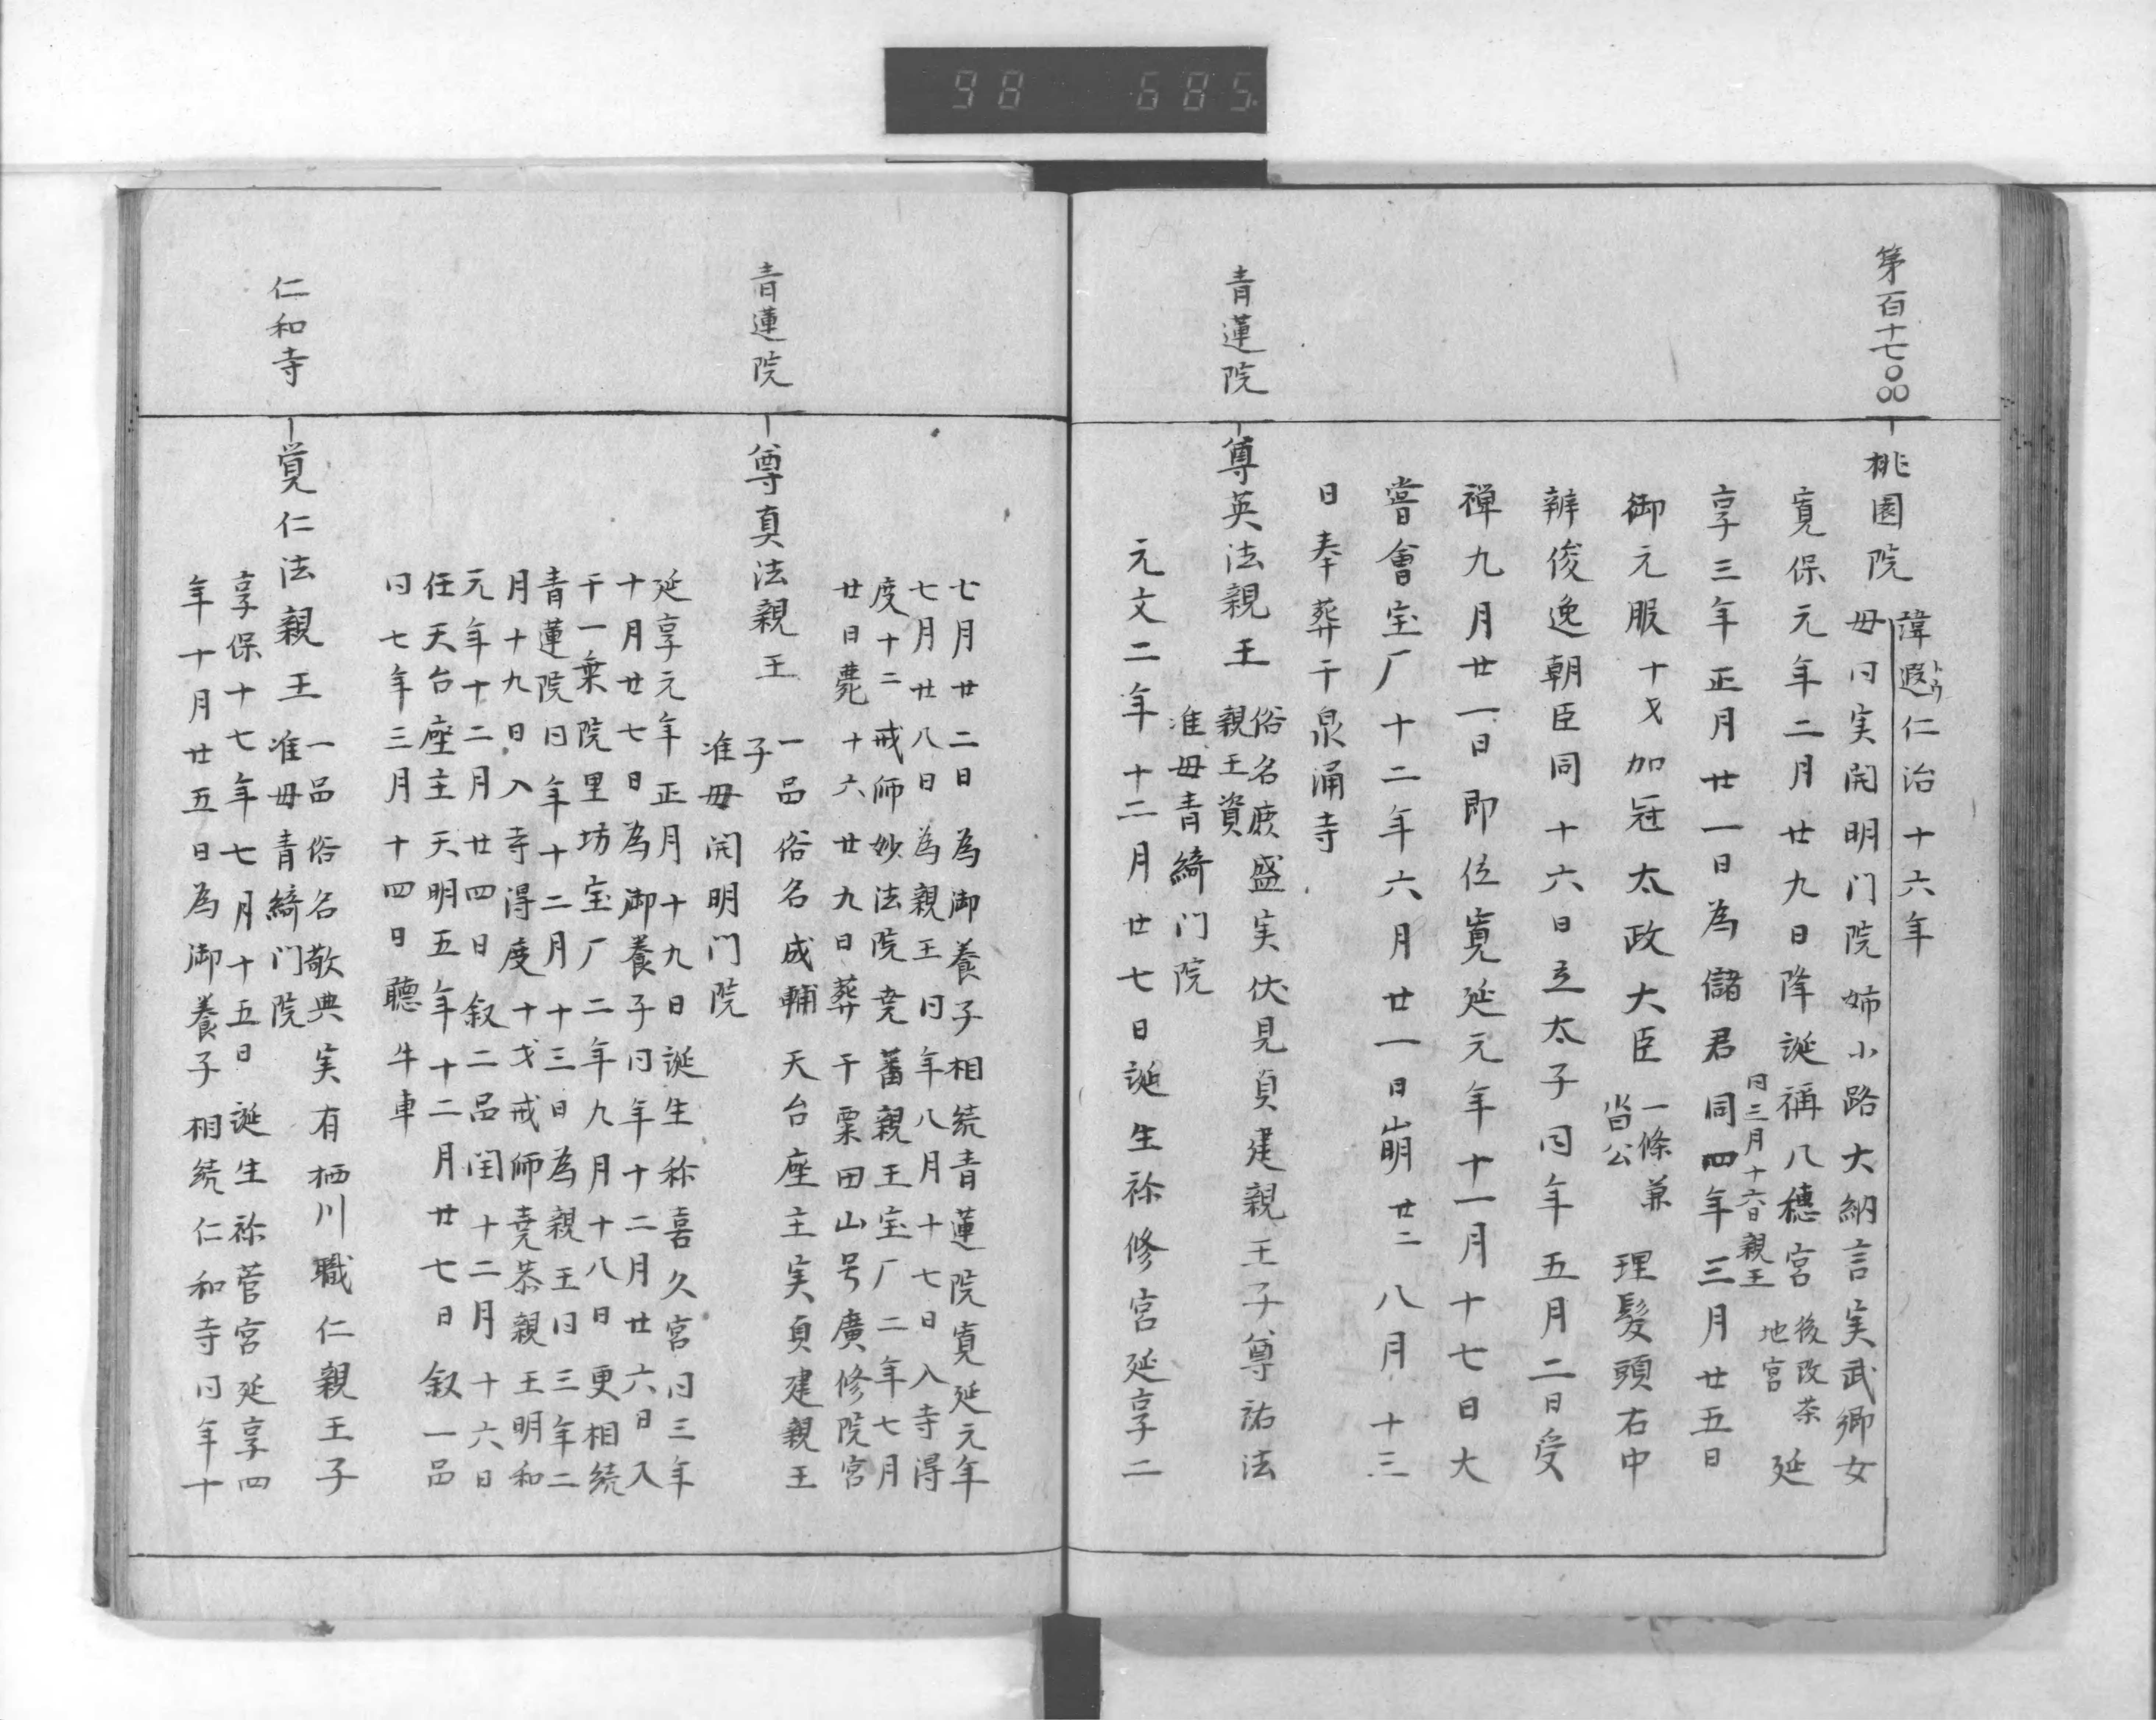 98 685
第百十七
桃園院
諱遐仁治十六年
トヲ
母同実開明门院姉小路大納言実武卿女
寛保元年二月廿九日降誕稱八穂宮後改茶地宮延
同三月十六日親王
享三年正月廿一日為儲君同四年三月廿五日
御元服十才加冠太政大臣一條兼香公理髪頭右中
辨俊逸朝臣同十六日立太子同年五月二日受
禅九月廿一日即位寛延元年十一月十七日大
嘗會宝厂十二年六月廿一日崩廿二八月十三
日奉葬于泉涌寺
青蓮院
尊英法親王
俗名庶盛実伏見貞建親王子尊祐法
親王資
准母青綺门院
元文二年十二月廿七日誕生称修宮延享二
七月廿二日為御養子相続青蓮院寛延元年
七月廿八日為親王同年八月十七日入寺得
度十二戒師妙法院尭蕃親王宝厂二年七月
廿日薨十六廿九日葬于粟田山号廣修院宮
青蓮院
尊真法親王
一品俗名成輔天台座主実貞建親王
子
准母開明门院
延享元年正月十九日誕生称喜久宮同三年
十月廿七日為御養子同年十二月廿六日入
于一乗院里坊宝厂二年九月十八日更相続
青蓮院同年十二月十三日為親王同三年二
月十九日入寺得度十才戒師尭恭親王明和
元年十二月廿四日叙二品閏十二月十六日
任天台座主天明五年十二月廿七日叙一品
同七年三月十四日聴牛車
仁和寺
覚仁法親王
一品俗名敬典実有栖川職仁親王子
准母青綺门院
享保十七年七月十五日誕生称菅宮延享四
年十月廿五日為御養子相続仁和寺同年十